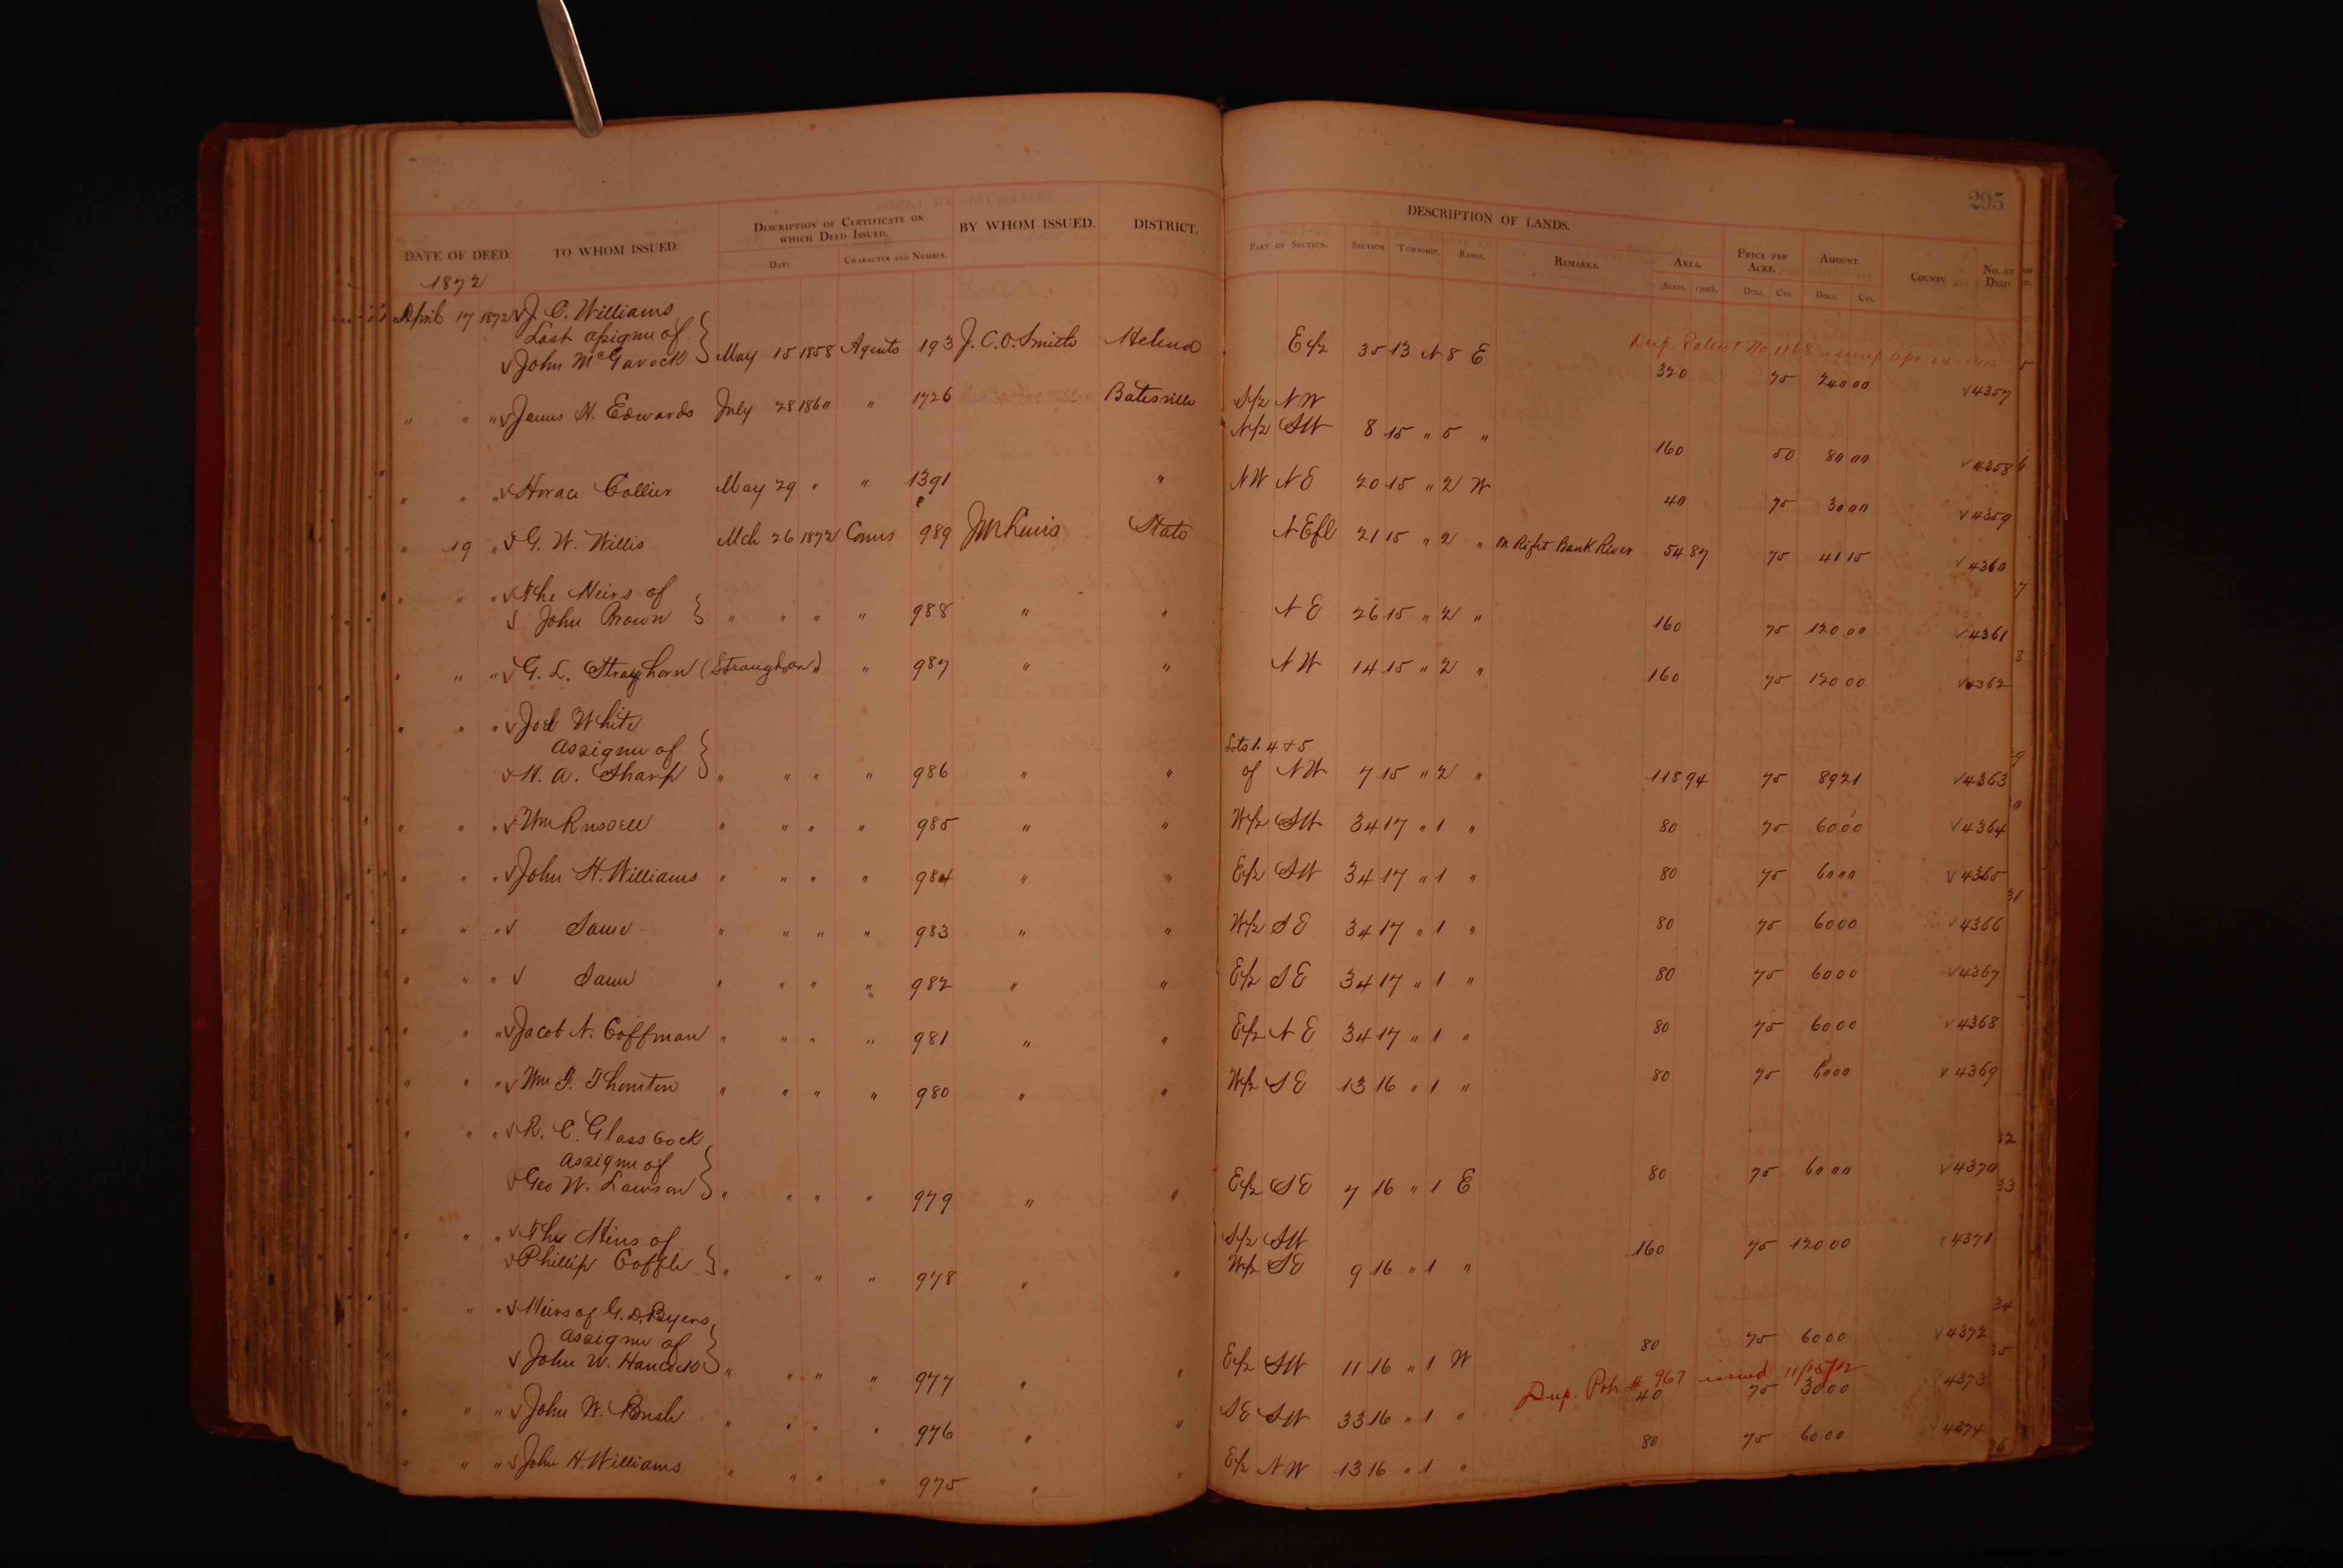 295
DESCRIPTION OF LANDS.
DATE OF DEED. TO WHOM ISSUED. DESCRIPTION OF CERTIFICATE ON WHICH DEED ISSUED. BY WHOM ISSUED. DISTRICT. PART OF SECTION. SECTION. TOWNSHIP. RANGE. REMARKS. AREA. PRICE PER ACRE. AMOUNT. COUNTY NO. OF DEED
DATE CHARACTER AND NUMBER. ACRES. 100ths. DOLL. CTS. DOLL. CTS.
1872
April 17 1872 √ J. C. Williams
Last assignee of Dup. Patent No. 1168 issued Apr
√ John McGavock } May 15 1858 Agents 193 J. C. O. Smith Helena E 1/2 35 13 N 8 E 320 75 240 00 √ 4357
" " " √ James N. Edwards July 28 1860 " 1726 Batesville S/2 NW
N/2 SW 8 15 " 5 " 160 50 80 00 √ 4358
" " " √ Horace Collier May 29 " " 1391 " NW NE 20 15 " 2 W 40 75 30 00 √ 4359
" 19 " √ G. W. Willis Mch 26 1872 Comrs 989 J M Lewis State N E fl 21 15 " 2 " on Right Bank River 54 87 75 41 15 √ 4360
" " " √ The Heirs of
√ John Brown } " " " " 988 " " N E 26 15 " 2 " 160 75 120 00 √ 4361
" " " √ G. L. Strayhorn (Straughan) " " 987 " " N W 14 15 " 2 " 160 75 120 00 √ 4362
" " " √ Joel White
assignee of Lots 1. 4 & 5
√ W. A. Sharp } " " " " 986 " " of NW 7 15 " 2 " 118 94 75 89 21 √ 4363
" " " √ Wm Russell " " " " 985 " " W/2 SW 34 17 " 1 " 80 75 60 00 √ 4364
" " " √ John H. Williams " " " " 984 " " E/2 SW 34 17 " 1 " 80 75 60 00 √ 4365
" " " √ Same " " " " 983 " " W/2 SE 34 17 " 1 " 80 75 60 00 √ 4366
" " " √ Same " " " " 982 " " E/2 SE 34 17 " 1 " 80 75 60 00 √ 4367
" " " √ Jacob N. Coffman " " " " 981 " " E/2 N E 34 17 " 1 " 80 75 60 00 √ 4368
" " " √ Wm F. Thornton " " " " 980 " " W/2 SE 13 16 " 1 " 80 75 60 00 √ 4369
" " " √ R. C. Glasscock
assignee of
√ Geo W. Lawson } " " " " 979 " " E/2 SE 7 16 " 1 E 80 75 60 00 √ 4370
" " " √ The Heirs of S/2 SW
√ Phillip Coffle } " " " " 978 " " W/2 SE 9 16 " 1 " 160 75 120 00 √ 4371
" " " √ Heirs of G. D. Byers
assignee of
√ John W. Hancock } " " " " 977 " " E/2 SW 11 16 " 1 W 80 75 60 00 √ 4372
Dup. Pat # 967 issued 11/15/12
" " " √ John W. Bush " " " " 976 " " SE SW 33 16 " 1 " 40 75 30 00 4373
" " " √ John H. Williams " " " " 975 " " E/2 NW 13 16 " 1 " 80 75 60 00 4374